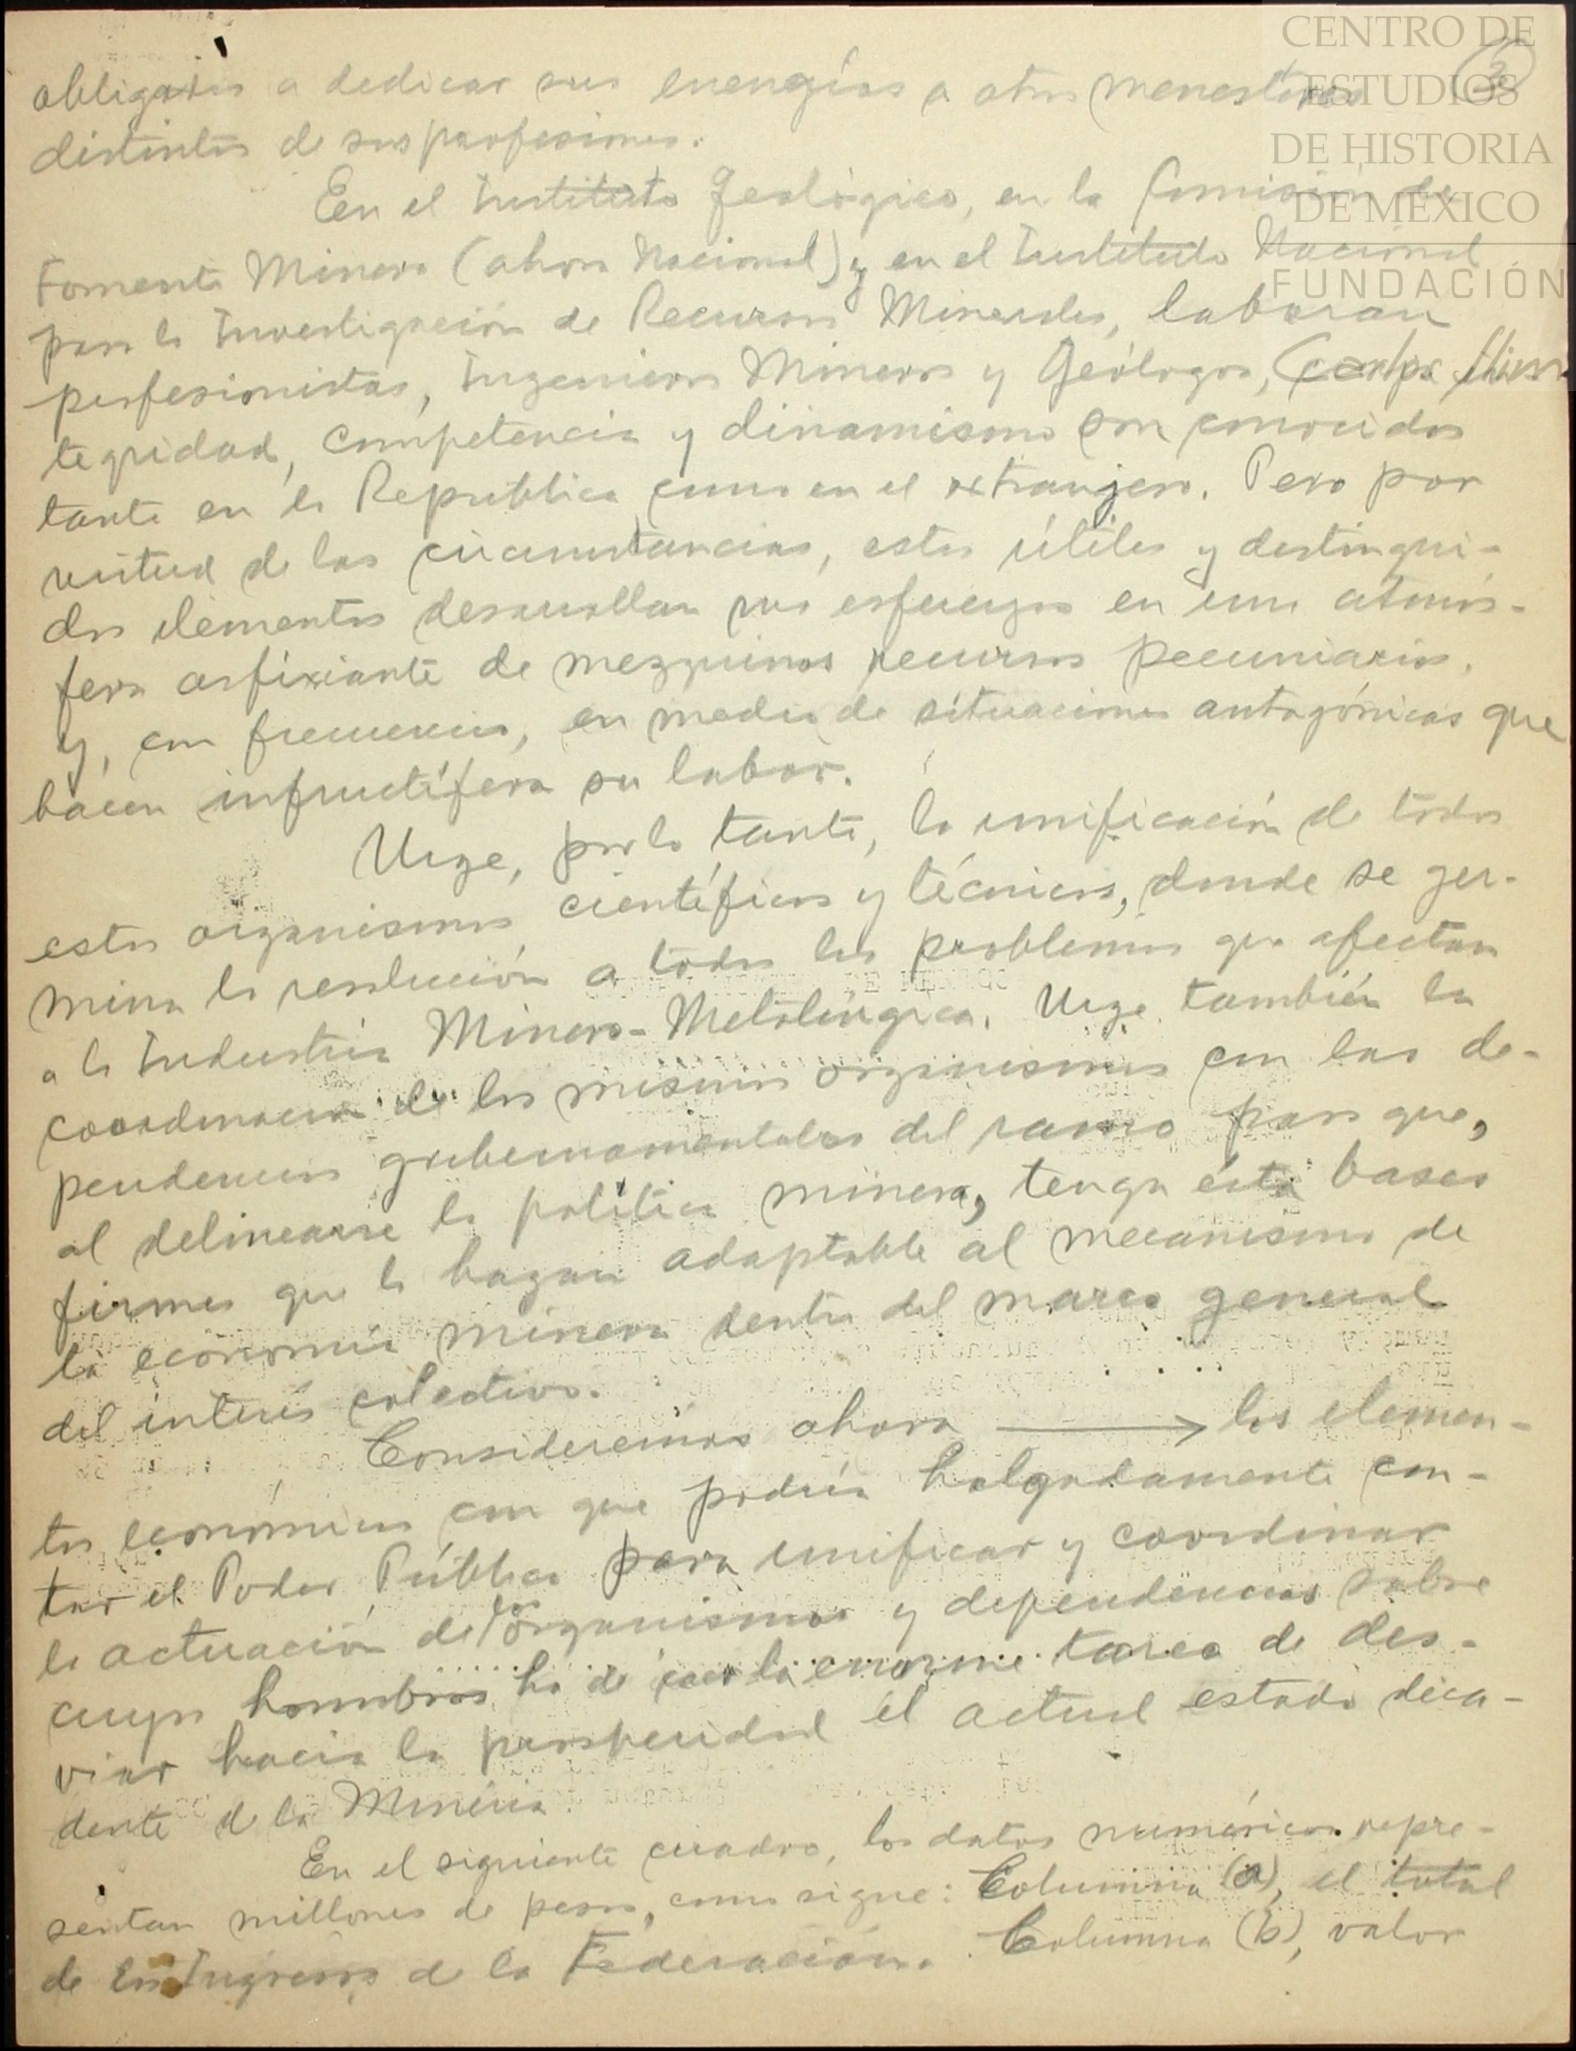 CENTRO DE
ESTUDIOS
DE HISTORIA
DE MÉXICO
FUNDACIÓN
3
obligados a dedicar sus energías a otros menesteres
distintos de sus profesiones.
En el Instituto Geológico, en la Comisión de
Fomento Minero (ahora Nacional) y en el Instituto Nacional
para la Investigación de Recursos Minerales, laboran
profesionistas, Ingenieros Mineros y Geólogos,
tegridad, competencia y dinamismo son conocidos
tanto en la República como en el extranjero. Pero por
virtud de las circunstancias, estos útiles y distingui-
dos elementos desarrollan sus esfuerzos en una atmós-
fera asfixiante de mezquinos recursos pecuniarios,
y, con frecuencia, en medio de situaciones antagónicas que
hacen infructífera su labor.
Urge, por lo tanto, la unificación de todos
estos organismos científicos y técnicos, donde se ger-
mina la resolución a todos los problemas que afectan
a la Industria Minero-Metalúrgica. Urge también la
coordinación de los mismos organismos con las de-
pendencias gubernamentales del ramo para que,
al delinearse la política minera, tenga ésta bases
firmes que la hagan adaptable al mecanismo de
la economía minera dentro del marco general
del interés colectivo.
Consideremos ahora los elemen-
tos económicos con que podría holgadamente con-
tar el Poder Público para unificar y coordinar
la actuación de los organismos y dependencias sobre
cuyos hombros ha de caer la enorme tarea de des-
viar hacia la prosperidad el actual estado deca-
dente de la Minería.
En el siguiente cuadro, los datos numéricos repre-
sentan millones de pesos, como sigue: Columna (a), el total
de los Ingresos de la Federación. Columna (b), valor